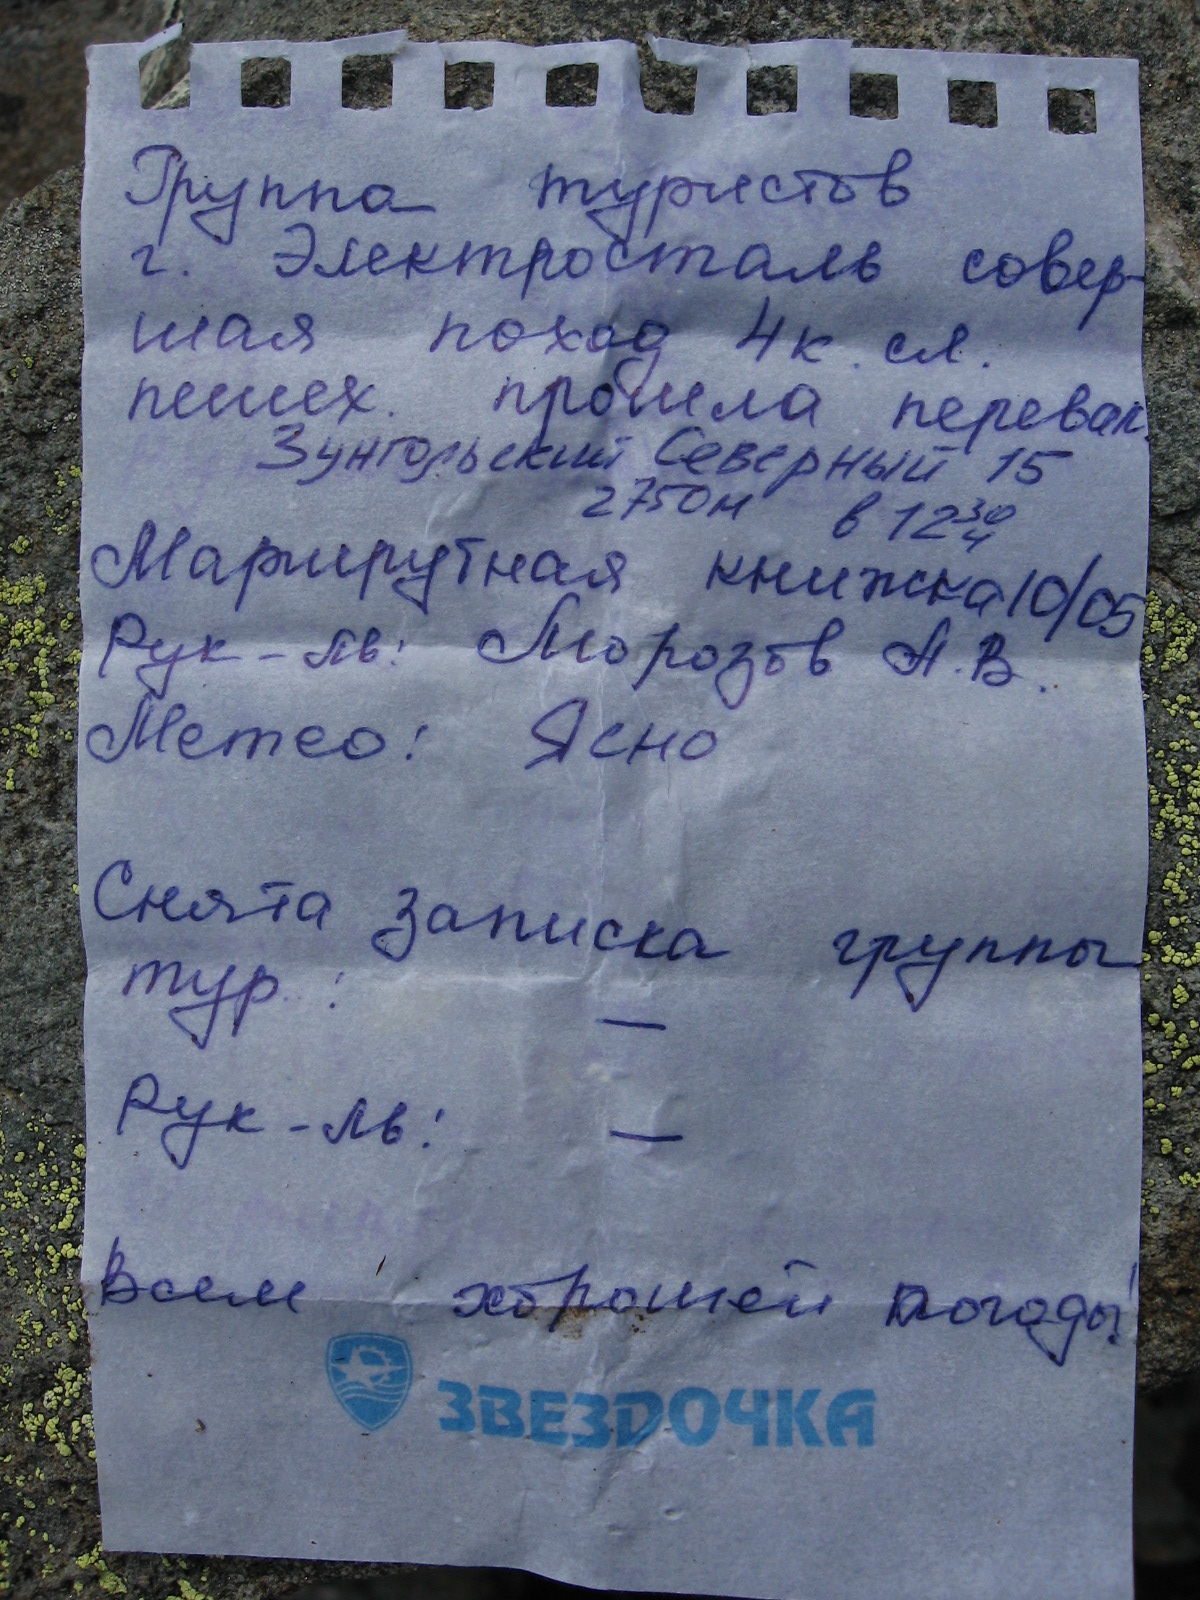 Группа туристов
г. Электросталь совер-
шая поход 4 к. сл.
пешех. прошла перевал
Зунгольский Северный 1Б
2750м в 12 30
Маршрутная книжка 10/05
Рук-ль: Морозов А.В.
Метео: Ясно
Снята записка группы
тур.: —
Рук-ль: —
Всем хорошей погоды!
ЗВЕЗДОЧКА